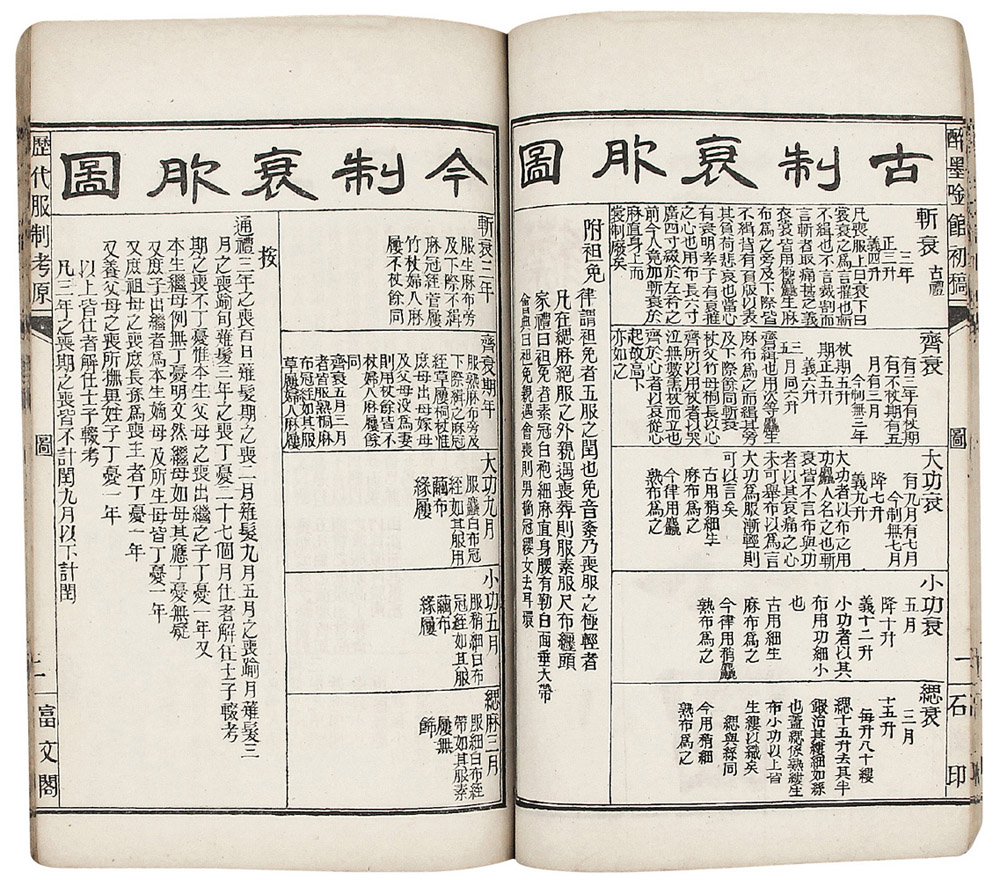 酔墨唫館初稿
圖
石印
古制衰服圖
斬衰 古禮
三年
正三升
義四升
凡喪服上曰衰下曰
裳衰之為言摧也斬
不緝也不言裁割而
言斬者取痛甚之義
衣裳皆用極麤生麻
布為之旁及下際皆
不緝背有負版以表
其負荷悲哀也當心
有衰明孝子有哀摧
之心也用布長六寸
廣四寸綴於左衿之
前今人竟加斬衰於
麻直身上而
裳制廢矣
齊衰
有三年有杖期
有不杖期有五
月有三月
今制無三年
杖期五升
期正五升
義六升
三月同六升
五
齊緝也用次等麤生
布為之而緝其旁
及下際餘同斬衰
杖父竹母桐長以心
齊於心者以哀從心
起故高下
亦如之
大功衰
有九月有七月
今制無七月
降七升
義九升
大功者以布之用
功麤人名之也斬
衰皆不言布與功
者以其哀痛之心
未可舉布以為言
大功為服漸輕則
可以言矣
古用稍細生
麻布為之
今律用麤
熟布為之
小功衰
五月
降十升
義十二升
小功者以其
布用功細小
也
古用細生
麻布為之
今律用稍麤
熟布為之
緦衰
三月
十五升
每升八十縷
緦十五升去其半
鍛治其縷細如絲
也蓋緦係熟縷生
布小功以上皆
生縷以織矣
緦與絲同
今用稍細
熟布為之
附袒免
律謂袒免者五服之閏也免音紊乃喪服之極輕者
凡在緦麻絕服之外親遇喪葬則服素服尺布纏頭
家禮曰袒免者素冠白袍細麻直身腰有勒白兩垂大帶
會典曰袒免親遇會喪則男摘冠纓女去耳環
今制衰服圖
斬衰三年
服生麻布旁
及下際不緝
麻冠絰菅屨
竹杖婦人麻
屨不杖餘同
齊衰期年
服熟麻布旁及
下際緝之麻冠
絰草屨桐杖惟
庶母出母嫁母
及父母沒為妻
則用杖餘皆不
杖婦人麻屨餘
同
齊衰五月三月
者皆服熟桐麻
布冠絰如其服
草屨婦人麻屨
大功九月
服麤白布冠
絰如其服用
繭布
緣屨
小功五月
服稍細白布
冠絰如其服
繭布
緣屨
緦麻三月
服細白布絰
帶如其服素
屨無
飾
按
通禮三年之喪百日薙髮期之喪二月薙髮九月五月之喪踰月薙髮三
月之喪踰旬薙髮三年之喪丁憂二十七個月仕者解任士子輟考
期之喪不丁憂惟本生父母之喪出繼之子丁憂一年又
本生繼母例無丁憂明文然繼母如母其應丁憂無疑
又庶子出繼者為本生嫡母及所生母皆丁憂一年
又庶祖母之喪庶長孫為喪主者丁憂一年
又養父母之喪所撫異姓子丁憂一年
以上皆仕者解任士子輟考
凡三年之喪期之喪皆不計閏九月以下計閏
歷代服制考原
圖
富文閣